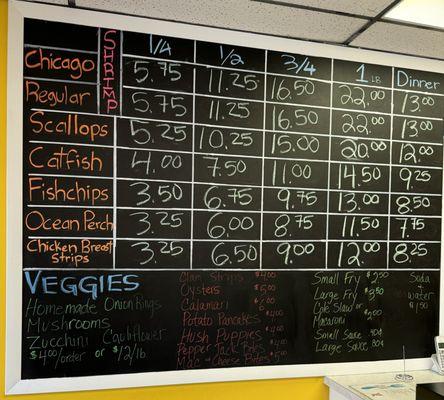 1/4 1/2 3/4 1 LB Dinner
SHRIMP
Chicago 5.75 11.25 16.50 22.00 13.00
Regular 5.75 11.25 16.50 22.00 13.00
Scallops 5.25 10.25 15.00 20.00 12.00
Catfish 4.00 7.50 11.00 14.50 9.25
Fishchips 3.50 6.75 9.75 13.00 8.50
Ocean Perch 3.25 6.00 8.75 11.50 7.75
Chicken Breast strips 3.25 6.50 9.00 12.00 8.25
VEGGIES
Homemade Onion Rings
Mushrooms
Zucchini Cauliflower
$4.00/order or $12/lb
Clam Strips $4.00
Oysters $5.00
Calamari
Potato Pancakes $4.00
Hush Puppies $4.00
Pepper Jack Balls $4.00
Mac n Cheese Bites $5.00
Small Fry $2.50
Large Fry
Cole Slaw or
Macaroni
Small Sauce 40¢
Large Sauce 80¢
Soda
or
water
$1.50